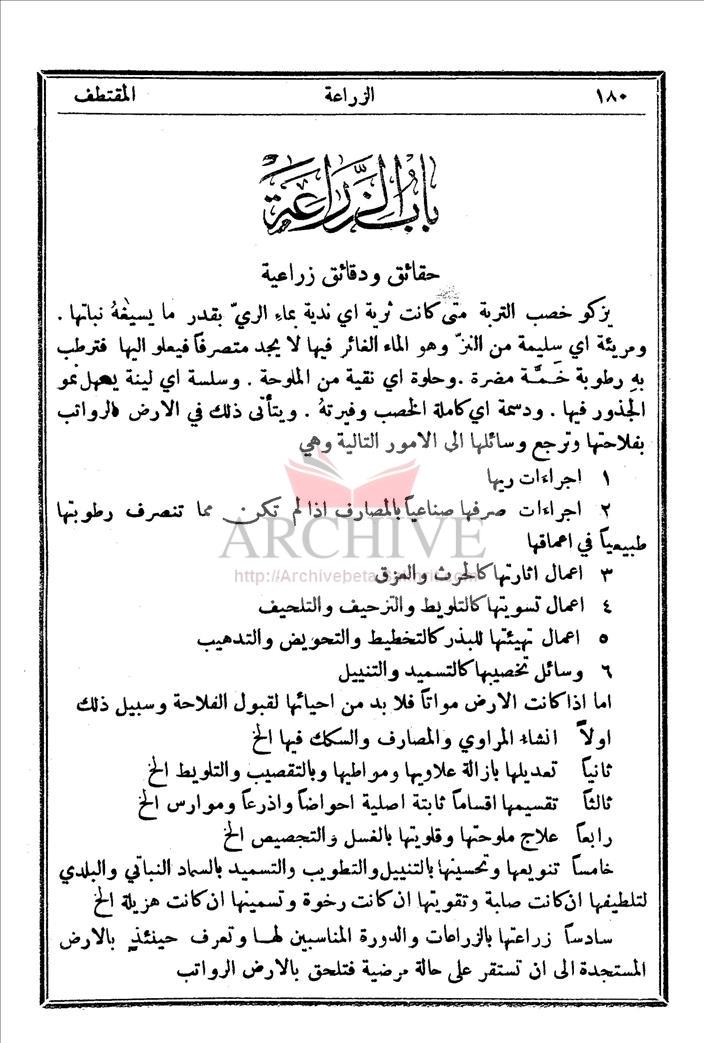 ١٨٠ الزراعة المقتطف
باب الزراعة
حقائق ودقائق زراعية
يزكو خصب التربة متى كانت ثرية اي ندية بماء الريّ بقدر ما يسيغهُ نباتها .
ومريئة اي سليمة من النزّ وهو الماء الغائر فيها لا يجد متصرفاً فيعلو اليها فترطب
بهِ رطوبة خَمَّة مضرة . وحلوة اي نقية من الملوحة . وسلسة اي لينة يسهل نمو
الجذور فيها . ودسمة اي كاملة الخصب وفيرتهُ . ويتأتى ذلك في الارض الرواتب
بفلاحتها وترجع وسائلها الى الامور التالية وهي
١ اجراءات ريها
٢ اجراءات صرفها صناعياً بالمصارف اذا لم تكن مما تنصرف رطوبتها
طبيعياً في اعماقها
ARCHIVE
٣ اعمال اثارتها كالحرث والعزق
http://Archivebeta.Sakhrit.com
٤ اعمال تسويتها كالتلويط والتزحيف والتلحيف
٥ اعمال تهيئتها للبذر كالتخطيط والتحويض والتدهيب
٦ وسائل تخصيبها كالتسميد والتنييل
اما اذا كانت الارض مواتاً فلا بد من احيائها لقبول الفلاحة وسبيل ذلك
اولاً انشاء المراوي والمصارف والسكك فيها الخ
ثانياً تعديلها بازالة علاويها ومواطيها وبالتقصيب والتلويط الخ
ثالثاً تقسيمها اقساماً ثابتة اصلية احواضاً واذرعاً وموارس الخ
رابعاً علاج ملوحتها وقلويتها بالغسل والتجصيص الخ
خامساً تنويعها وتحسينها بالتنييل والتطويب والتسميد بالسماد النباتي والبلدي
لتلطيفها ان كانت صلبة وتقويتها ان كانت رخوة وتسمينها ان كانت هزيلة الخ
سادساً زراعتها بالزراعات والدورة المناسبين لها وتعرف حينئذٍ بالارض
المستجدة الى ان تستقر على حالة مرضية فتلحق بالارض الرواتب